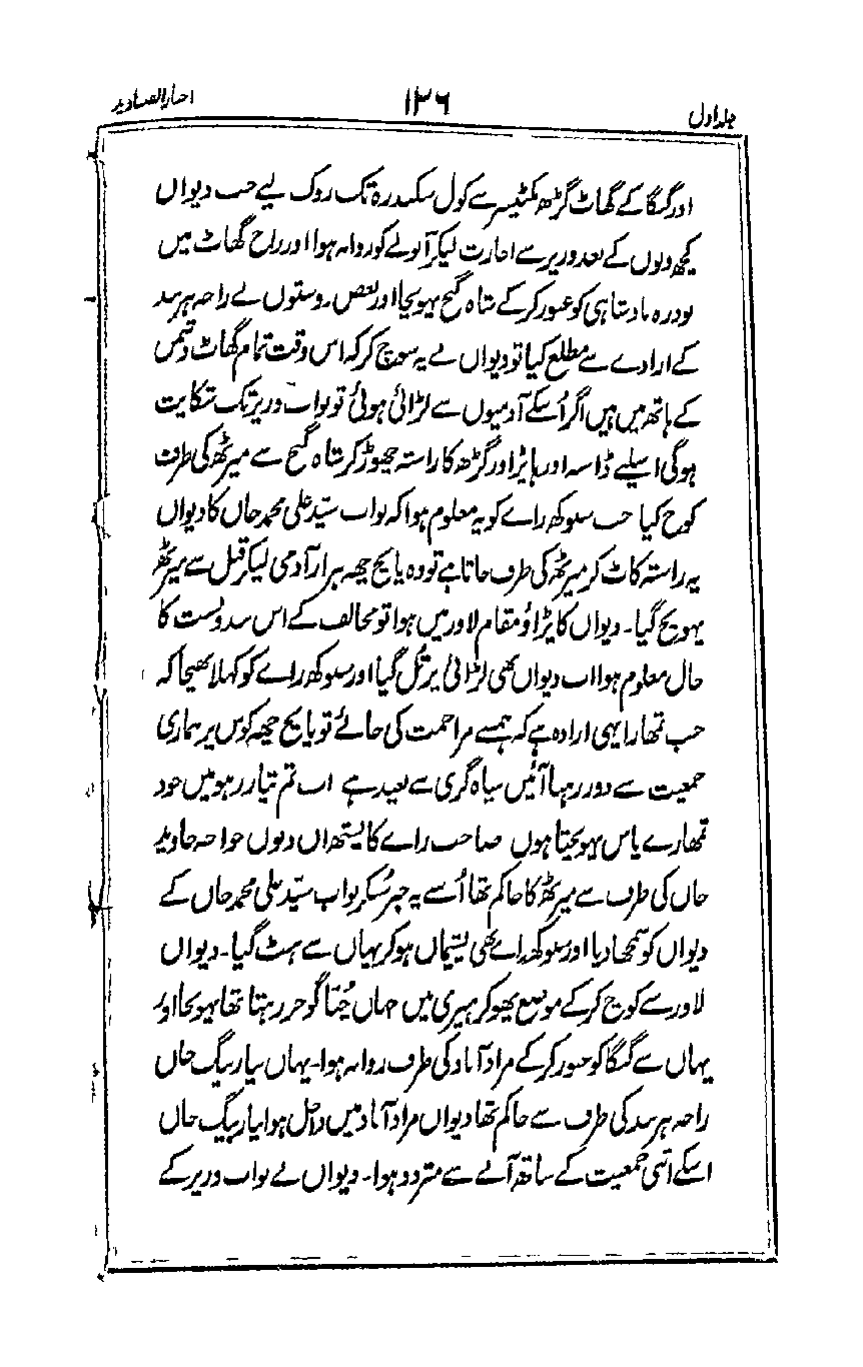 جلد اول ۱۳۶ اخبار الصنادید
اور گنگا کے گھاٹ گڑھ مکٹیسر سے کول سکندرہ تک روک لیے جب دیوان
کچھ دنوں کے بعد وزیر سے اجازت لیکر آنولے کو روانہ ہوا اور راج گھاٹ میں
بودرہ بادشاہی کو عبور کرکے شاہ گنج پہونچا اور بعض دوستوں نے راجہ ہرنند
کے ارادے سے مطلع کیا تو دیوان نے یہ سوچ کر کہ اس وقت تمام گھاٹ دشمن
کے ہاتھ میں ہیں اگر اُسکے آدمیوں سے لڑائی ہوئی تو نواب وزیر تک شکایت
ہوگی اسلیے ڈاسنہ اور ہاپڑ اور گڑھ کا راستہ چھوڑ کر شاہ گنج سے میرٹھ کی طرف
کوچ کیا جب سلوکھ راے کو یہ معلوم ہوا کہ نواب سید علی محمد خاں کا دیوان
یہ راستہ کاٹ کر میرٹھ کی طرف جاتا ہے تو وہ پانچ چھہ ہزار آدمی لیکر قبل سے میرٹھ
پہونچ گیا۔ دیوان کا پڑاؤ مقام لاور میں ہوا تو مخالف کے اس بندوبست کا
حال معلوم ہوا اب دیوان بھی لڑائی پر تُل گیا اور سلوکھ راے کو کہلا بھیجا کہ
جب تمھارا یہی ارادہ ہے کہ ہمسے مزاحمت کی جائے تو پانچ چھہ کوس پر ہماری
جمعیت سے دور رہنا آئین سپاہ گری سے بعید ہے اب تم تیار رہو میں خود
تمھارے پاس پہونچتا ہوں صاحب راے کایستھ ان دنوں خواجہ جاوید
خاں کی طرف سے میرٹھ کا حاکم تھا اُسنے یہ خبر سُنکر نواب سید علی محمد خاں کے
دیوان کو سمجھا دیا اور سلوکھ راے بھی پشیمان ہو کر یہاں سے ہٹ گیا۔ دیوان
لاور سے کوچ کرکے موضع بھوکر ہیری میں جہاں جُنتا گوجر رہتا تھا پہونچا اور
یہاں سے گنگا کو عبور کرکے مرادآباد کی طرف روانہ ہوا۔ یہاں نیاز بیگ خاں
راجہ ہرنند کی طرف سے حاکم تھا دیوان مرادآباد میں داخل ہوا نیاز بیگ خاں
اسکے اتنی جمعیت کے ساتھ آنے سے متردد ہوا۔ دیوان نے نواب وزیر کے